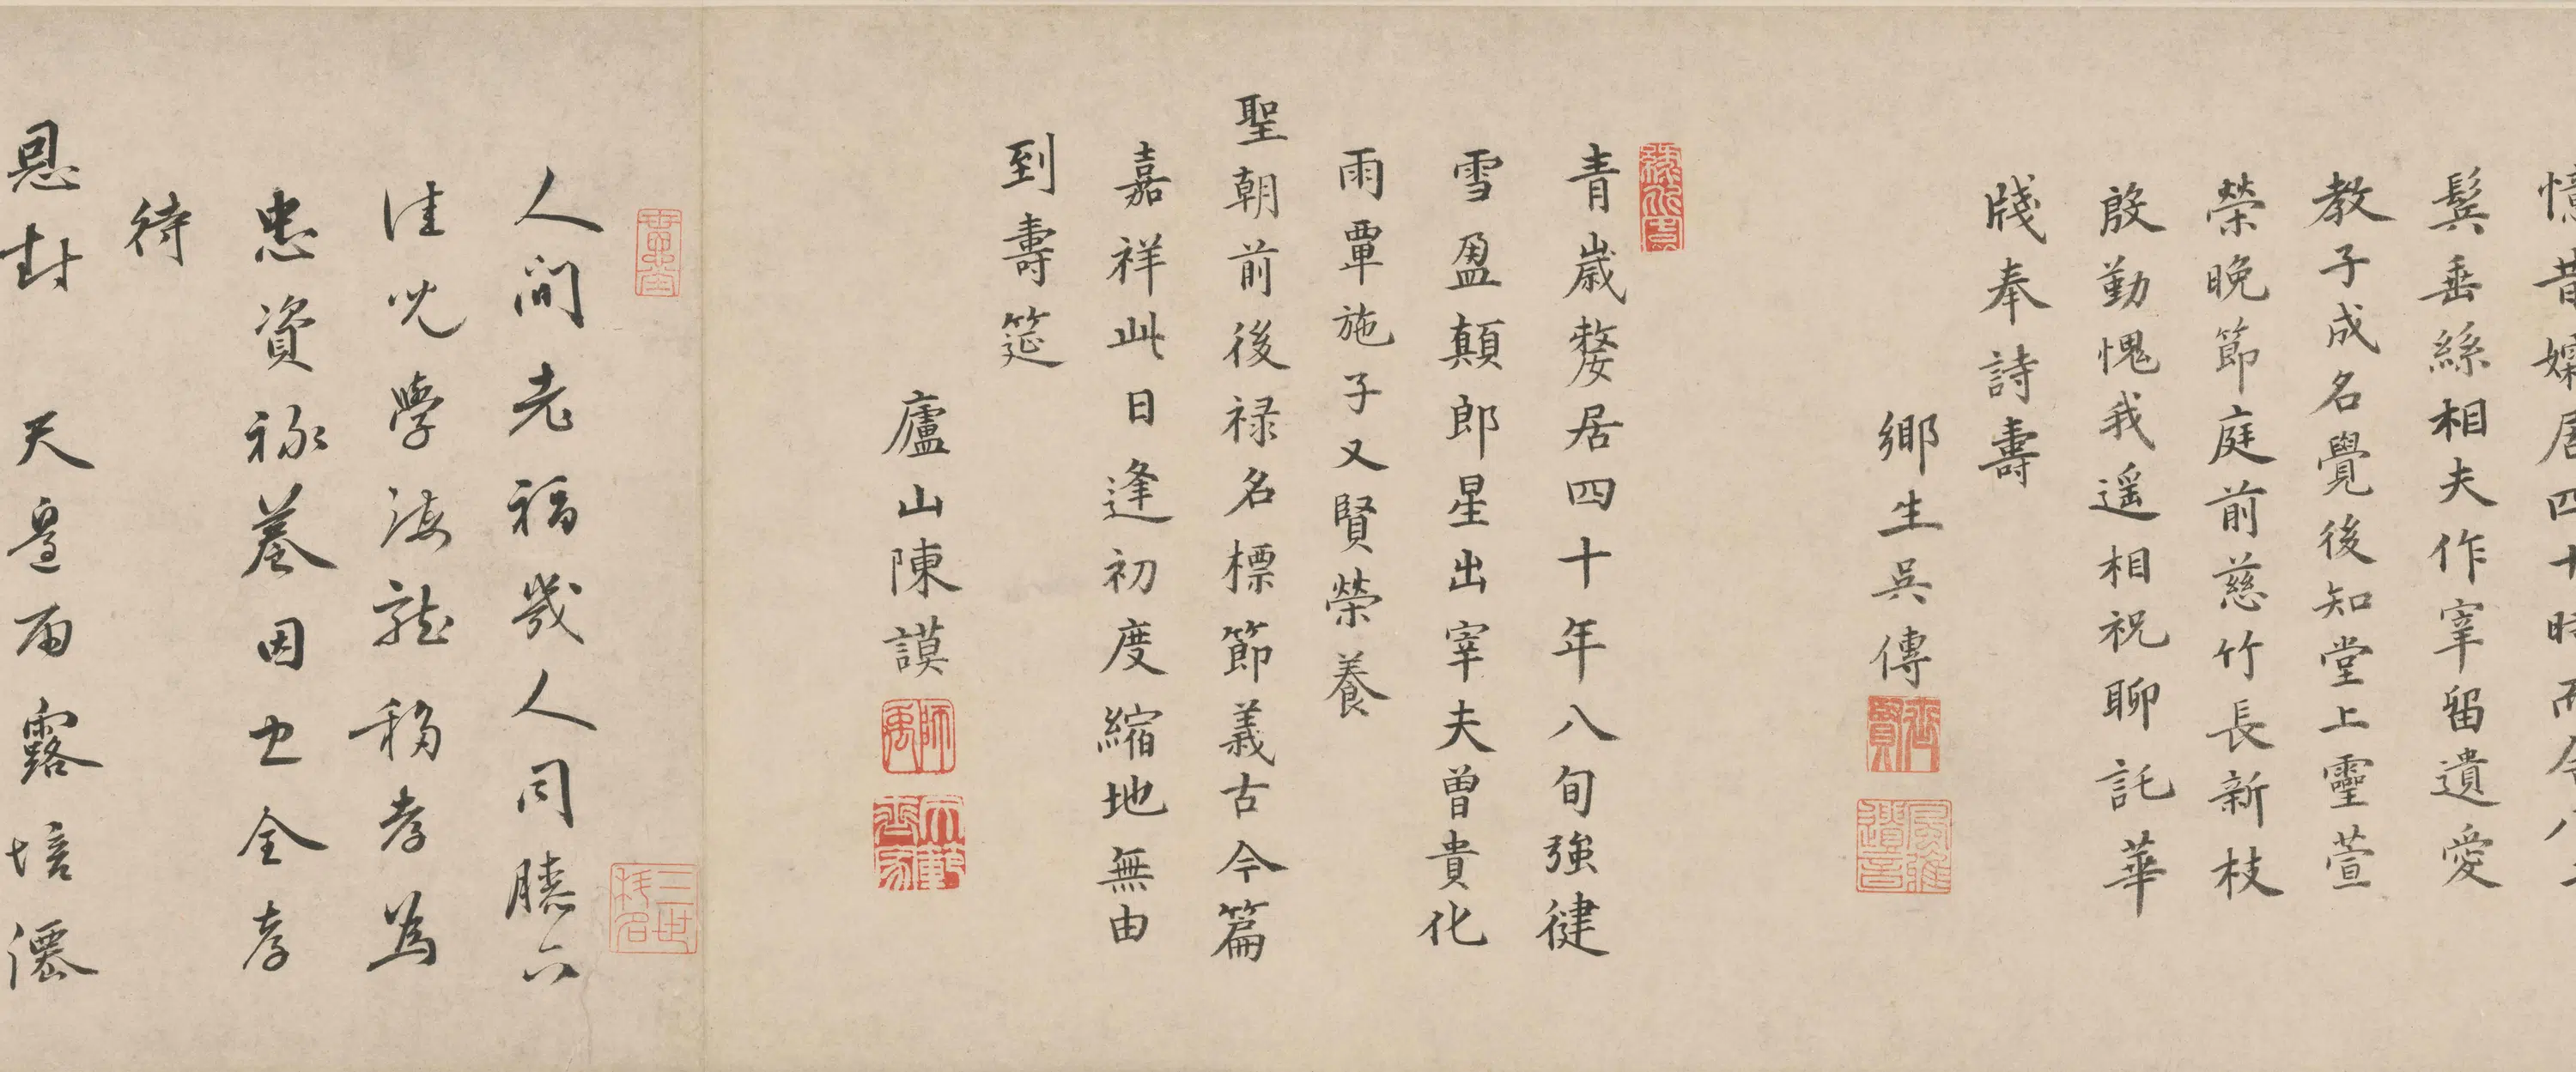 憶昔孀居四十時而今八
鬂垂絲相夫作宰留遺愛
教子成名覺後知堂上靈萱
榮晚節庭前慈竹長新枝
殷勤愧我遥相祝聊託華
牋奉詩壽
鄉生吳傳
青歲嫠居四十年八旬強健
雪盈顛郎星出宰夫曽貴化
雨覃施子又賢榮養
聖朝前後禄名標節義古今篇
嘉祥此日逢初度縮地無由
到壽筵
廬山陳謨
師禹
人間老福幾人同膝下
佳兒學海龍移孝為
忠資祿養因忠全孝
待
恩封 天邊雨露培僊